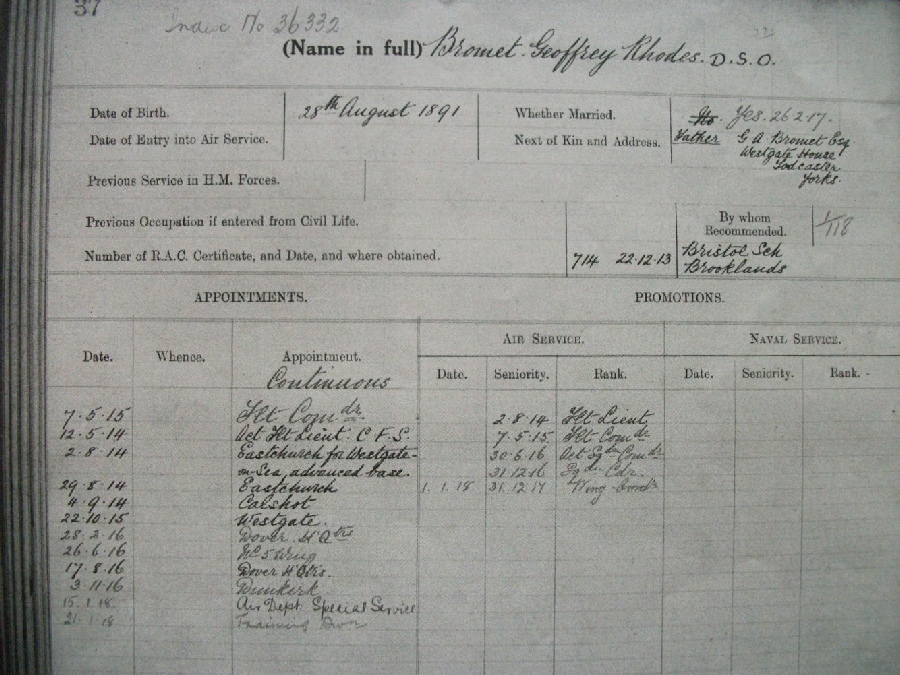 37
Index No 36332
(Name in full) Bromet. Geoffrey Rhodes. D.S.O.
Date of Birth. 28th August 1891 Whether Married. No. Yes. 26.2.17.
Date of Entry into Air Service. Next of Kin and Address. Father G A Bromet Esq
Westgate House
Tadcaster
Yorks.
Previous Service in H.M. Forces.
Previous Occupation if entered from Civil Life. By whom Recommended. 1/118
Number of R.A.C. Certificate, and Date, and where obtained. 714 22.12.13 Bristol Sch
Brooklands
APPOINTMENTS. PROMOTIONS.
AIR SERVICE. NAVAL SERVICE.
Date. Whence. Appointment. Date. Seniority. Rank. Date. Seniority. Rank.
Continuous
7.5.15 Flt Comdr. 2.8.14 Flt Lieut
12.5.14 Act Flt Lieut. C.F.S. 7.5.15 Flt Comdr
2.8.14 Eastchurch for Westgate- 30.6.16 Act Sqdn Comdr
on-Sea, advanced base. 31.12.16 Sqdn Cdr.
29.8.14 Eastchurch 1.1.18 31.12.17 Wing Comdr
4.9.14 Calshot
22.10.15 Westgate.
28.2.16 Dover. H Qtrs
26.6.16 No 5 Wing
17.8.16 Dover H Qtrs.
3.11.16 Dunkirk
15.1.18. Air Dept. Special Service
21.1.18 Training Divn